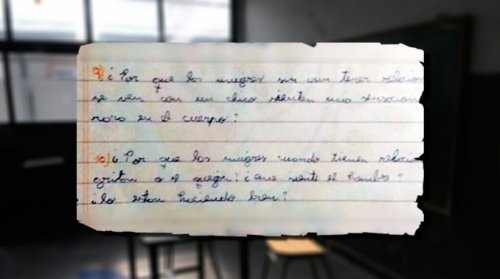 9) ¿Por que las mugeres sin aun tener relacion
se ven con un chico sienten una sensacion
rara en el cuerpo?
10) ¿Por que las mugeres cuando tienen relac
gritan o se quejan? ¿que siente el hombre?
¿lo estan haciendo bien?